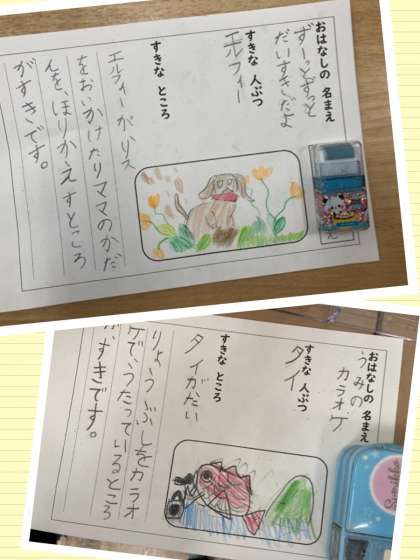 おはなしの 名まえ
ずーっとずっと
だいすきだよ
すきな 人ぶつ
エルフィー
すきな ところ
エルフィーが、リス
をおいかけたりママのかだ
んを、ほりかえすところ
がすきです。
え
おはなしの 名まえ
うみの
カラオケ
すきな 人ぶつ
タイ
すきな ところ
タイがだい
りょうぶしをカラオ
ケで、うたっているところ
が、すきです。